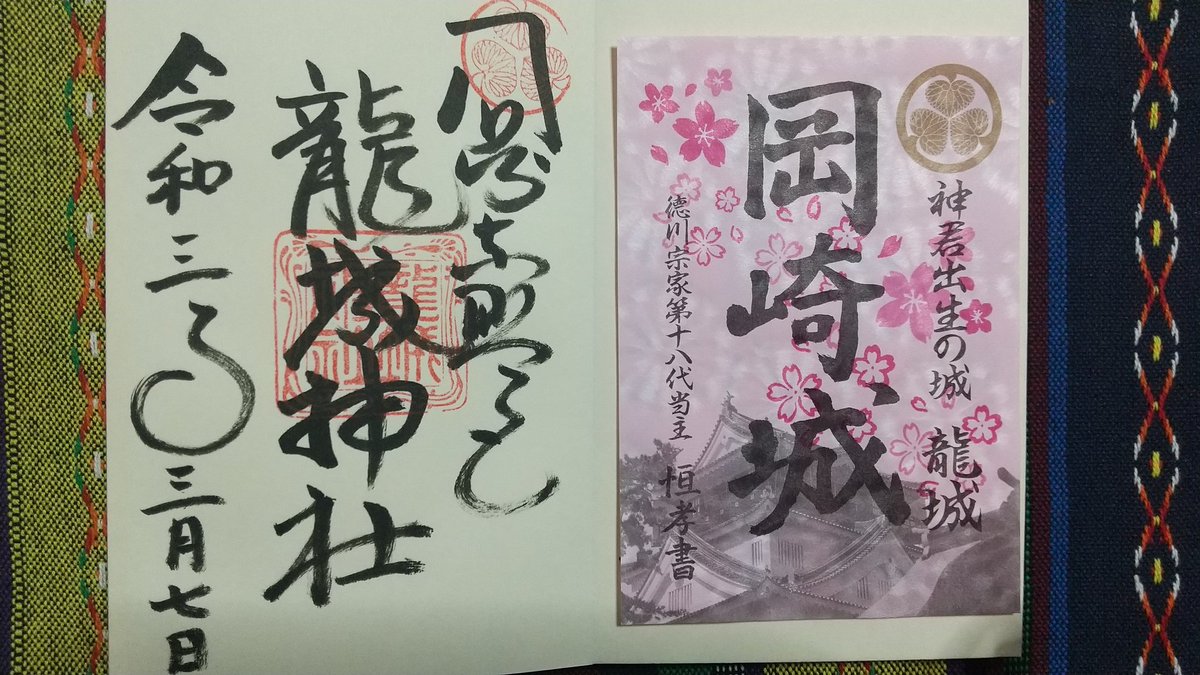 神君出生の城 龍城
岡崎城
徳川宗家第十八代当主 恒孝書
岡崎東照宮
龍城神社
令和三年三月七日